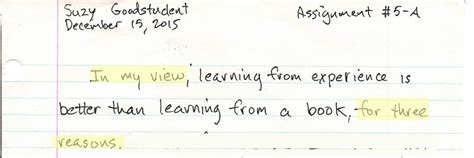 Suzy Goodstudent Assignment #5-A
December 15, 2015
In my view, learning from experience is
better than learning from a book, for three
reasons.